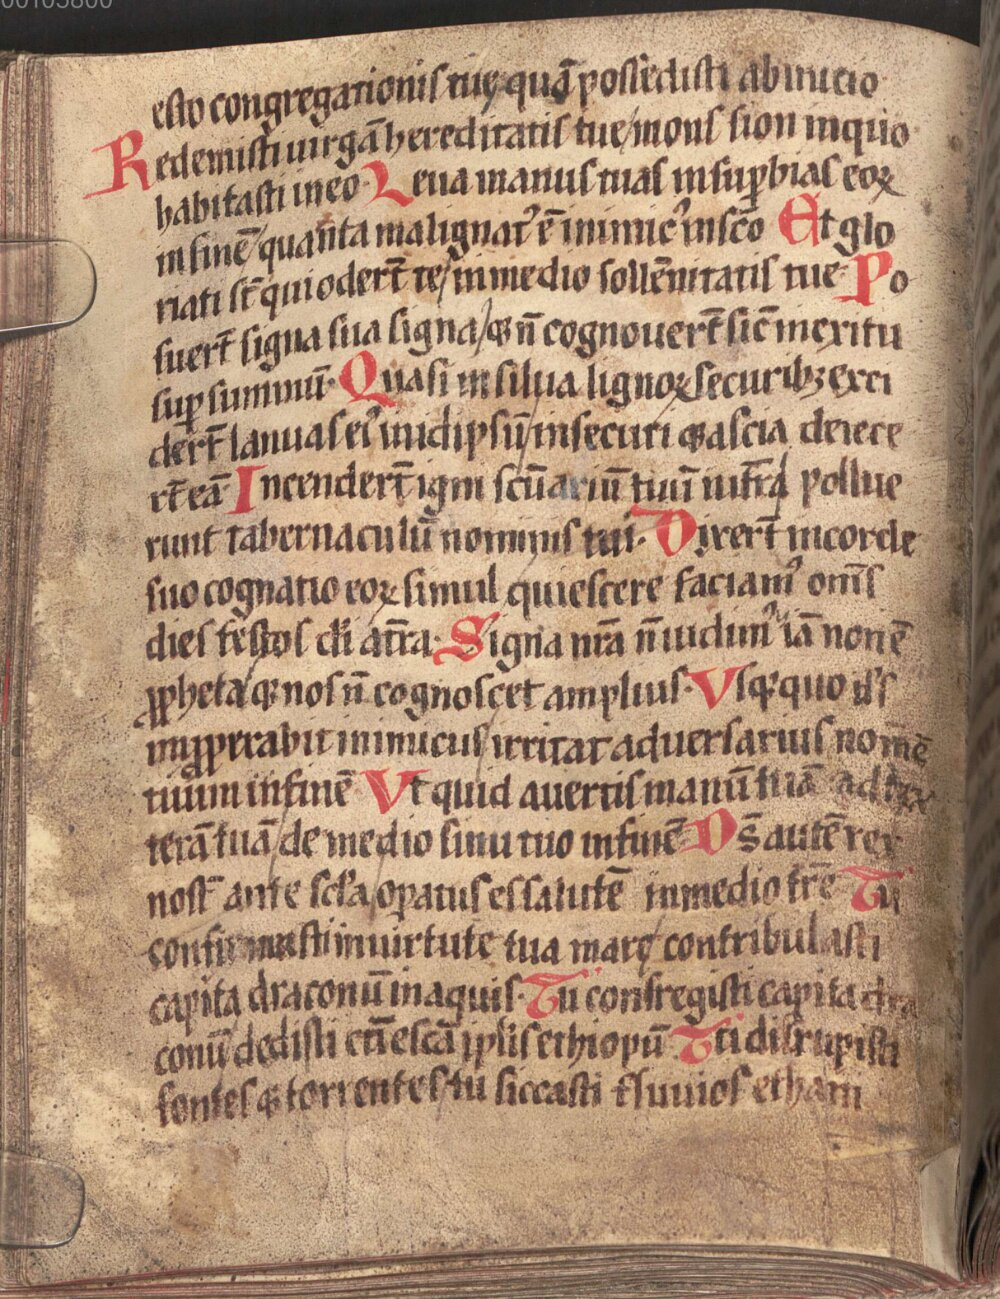 00105800
esto congregationis tuę quā possedisti ab inicio
Redemisti uirgā hereditatis tue mons sion in quo
habitasti in eo Leua manus tuas in sup̱bias eoꝝ
in finē quanta malignatꝰ ē inimicꝰ in scō Et glo
riati st̄ qui odert̄ te in medio sollēnitatis tue Po
suert̄ signa sua signa ⁊ n̄ cognouert̄ sic̄ in exitu
sup̱ summū. Quasi in silua lignoꝝ securibꝫ exci
dert̄ Ianuas eiꝰ in idipsū in securi ⁊ ascia deiece
rt̄ eā Incendert̄ igni scūariū tuū in tr̄a pollue
runt tabernaculū nominis tui. Dixert̄ in corde
suo cognatio eoꝝ simul quiescere faciamꝰ om̄s
dies festos dī a tr̄a. Signa nr̄a n̄ uidimꝰ iā non ē
ꝓpheta ⁊ nos n̄ cognoscet amplius. Vsq̨quo ds̄
inꝓperabit inimicus irritat aduersarius nomē
tuum in finē Vt quid auertis manū tuā ⁊ dex
terā tuā de medio sinu tuo in finē Ds̄ autē rex
nost̄ ante scl̄a op̱atus es salutē in medio tr̄e Tu
confirmasti in uirtute tua marę contribulasti
capita draconū in aquis. Tu confregisti capita dra
conū dedisti eū escā pp̄lis ethiopū Tu disrupisti
fontes ⁊ torrentes tu siccasti fluuios etham